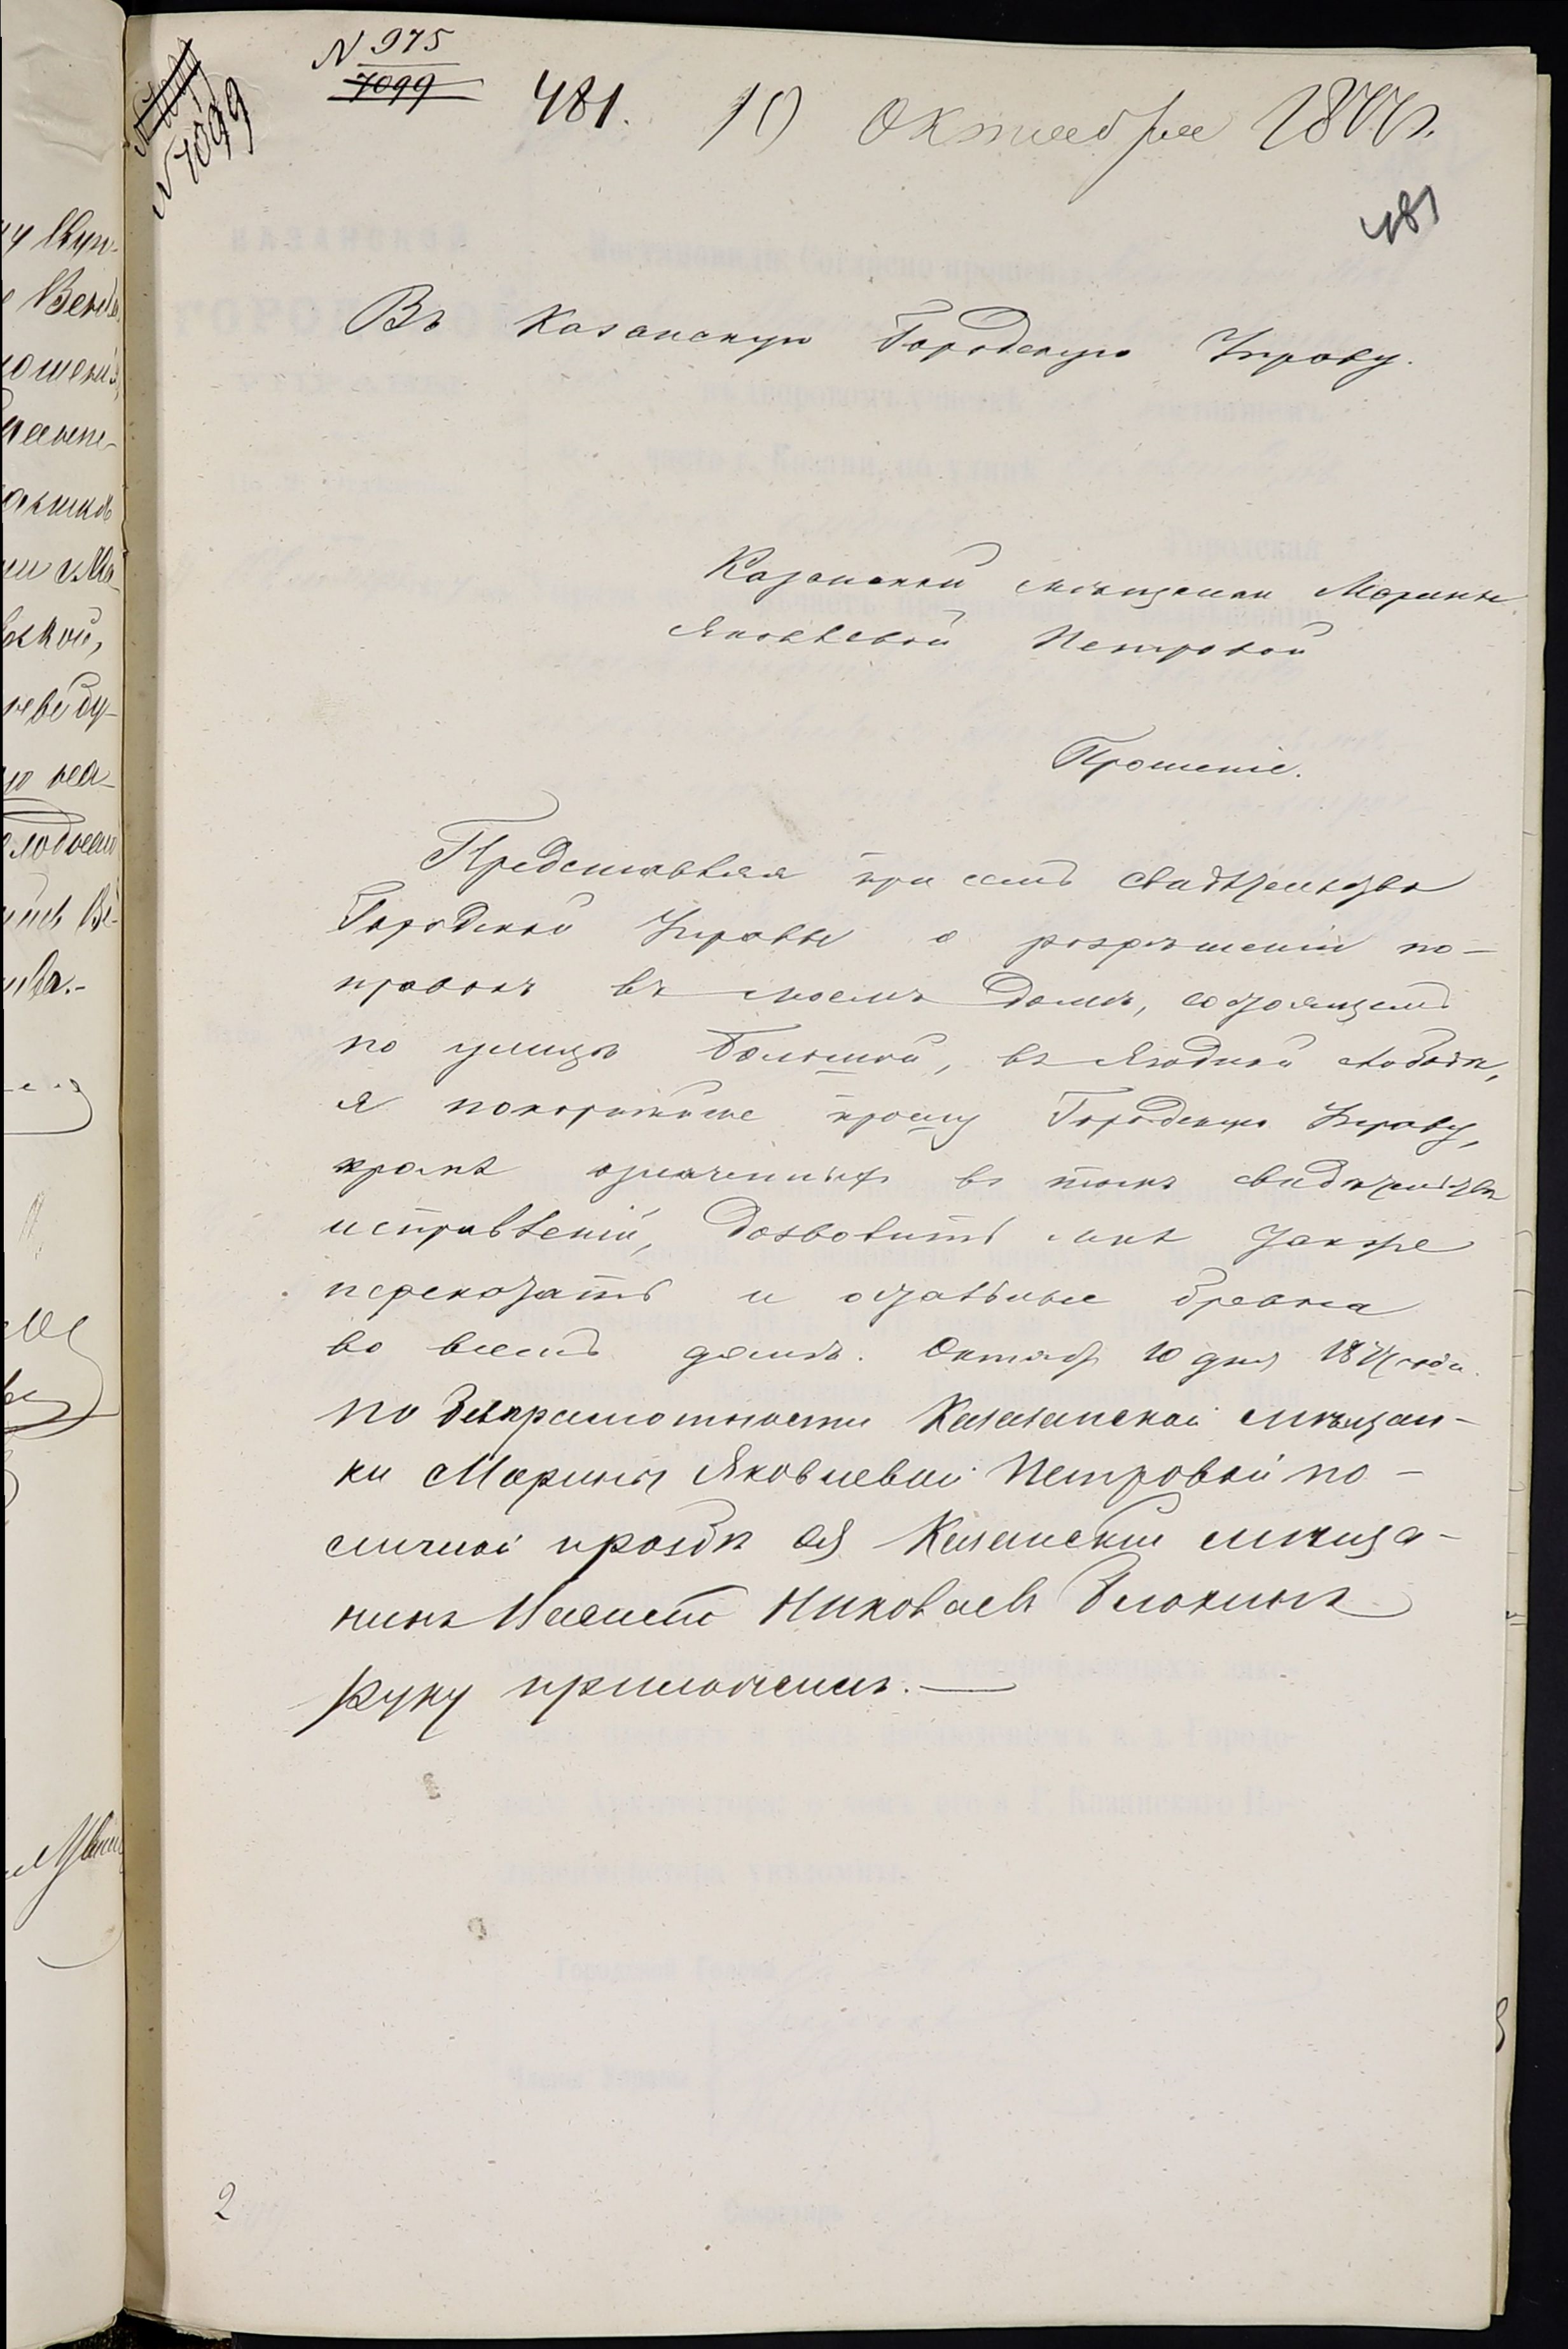 N 975
7099
N 7099
481. 10 Октября 1877г.
481
Въ Казанскую Городскую Управу.
Казанской мѣщанки Марины
Яковлевой Петровой
Прошеніе.
Представляя при семъ свидѣтельство
Городской Управы о разрѣшеніи по-
правокъ въ моемъ домѣ, состоящемъ
по улицѣ Большой, въ Ягодной слободѣ,
я покорнѣйше прошу Городскую Управу,
кромѣ означенныхъ въ томъ свидѣтельствѣ
исправленій, дозволить мнѣ также
перекатать и остальные бревна
во всемъ домѣ. Октября 10 дня 1877 года.
по безграмотности Казанской мѣщан-
ки Марины Яковлевой Петровой по-
личной прозбѣ ея Казанскій мѣща-
нинъ Николаевъ
руку приложилъ.
2